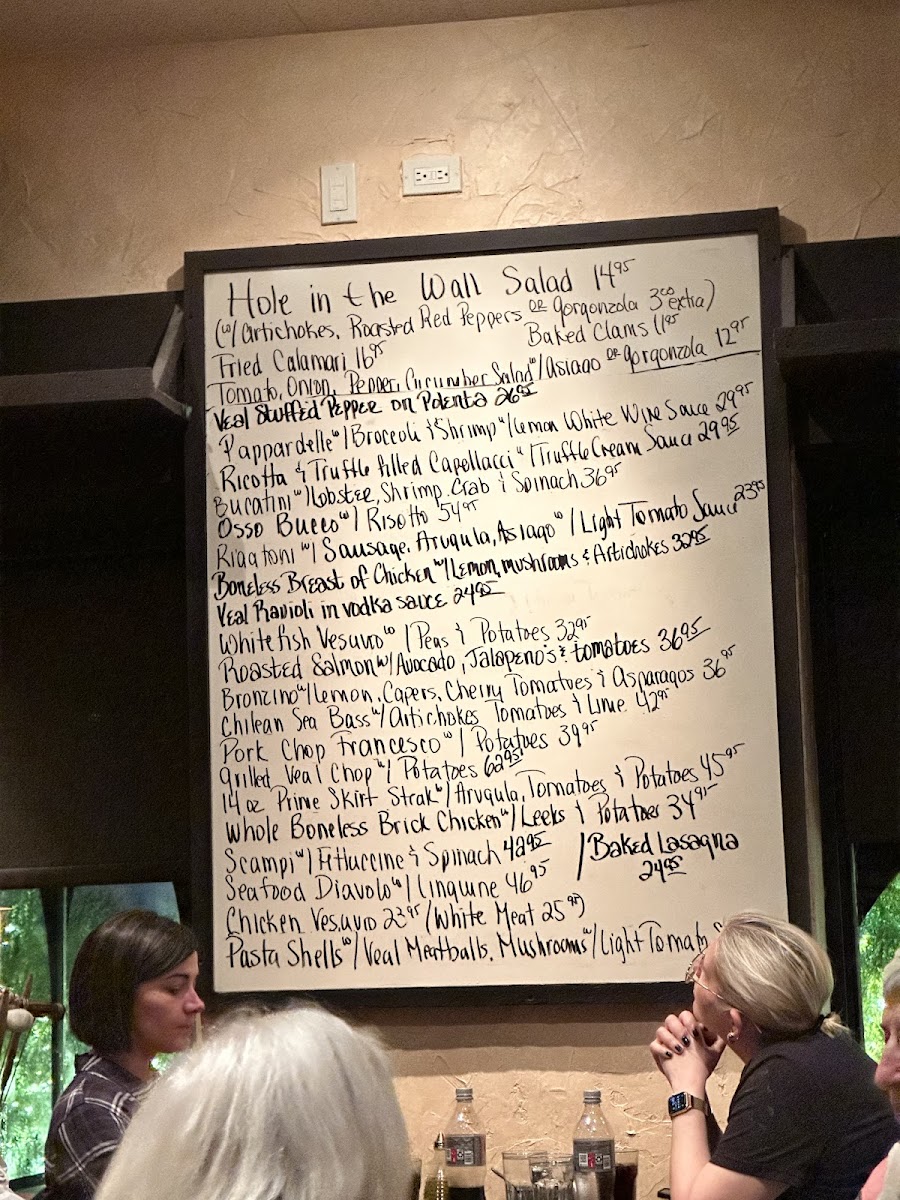 Hole in the Wall Salad 14 95
(w/Artichokes, Roasted Red Peppers or gorgonzola 3 00 extra)
Baked Clams 11 95
Fried Calamari 16 95
Tomato, Onion, Pepper, Cucumber Salad w/Asiago or gorgonzola 12 95
Veal Stuffed Pepper on Polenta 26 95
Pappardelle w/Broccoli & Shrimp w/Lemon White Wine Sauce 29 95
Ricotta & Truffle filled Capellacci w/Truffle Cream Sauce 29 95
Bucatini w/Lobster, Shrimp, Crab & Spinach 36 95
Osso Bucco w/Risotto 54 95
Rigatoni w/Sausage, Arugula, Asiago w/Light Tomato Sauce 23 95
Boneless Breast of Chicken w/Lemon, mushrooms & Artichokes 32 95
Veal Ravioli in vodka sauce 24 95
Whitefish Vesuvio w/Peas & Potatoes 32 95
Roasted Salmon w/Avocado, Jalapeno's & tomatoes 36 95
Bronzino w/Lemon, Capers, Cherry Tomatoes & Asparagos 36 95
Chilean Sea Bass w/Artichokes Tomatoes & Lime 42 95
Pork Chop Francesco w/Potatoes 39 95
grilled Veal Chop w/Potatoes 62 95
14 oz Prime Skirt Steak w/Arugula, Tomatoes & Potatoes 45 95
Whole Boneless Brick Chicken w/Leeks & Potatoes 34 95
Scampi w/Fettuccine & Spinach 42 95
/Baked Lasagna
24 95
Seafood Diavolo w/Linguine 46 95
Chicken Vesuvio 23 95 (White Meat 25 95)
Pasta Shells w/Veal Meatballs, Mushrooms w/Light Tomato